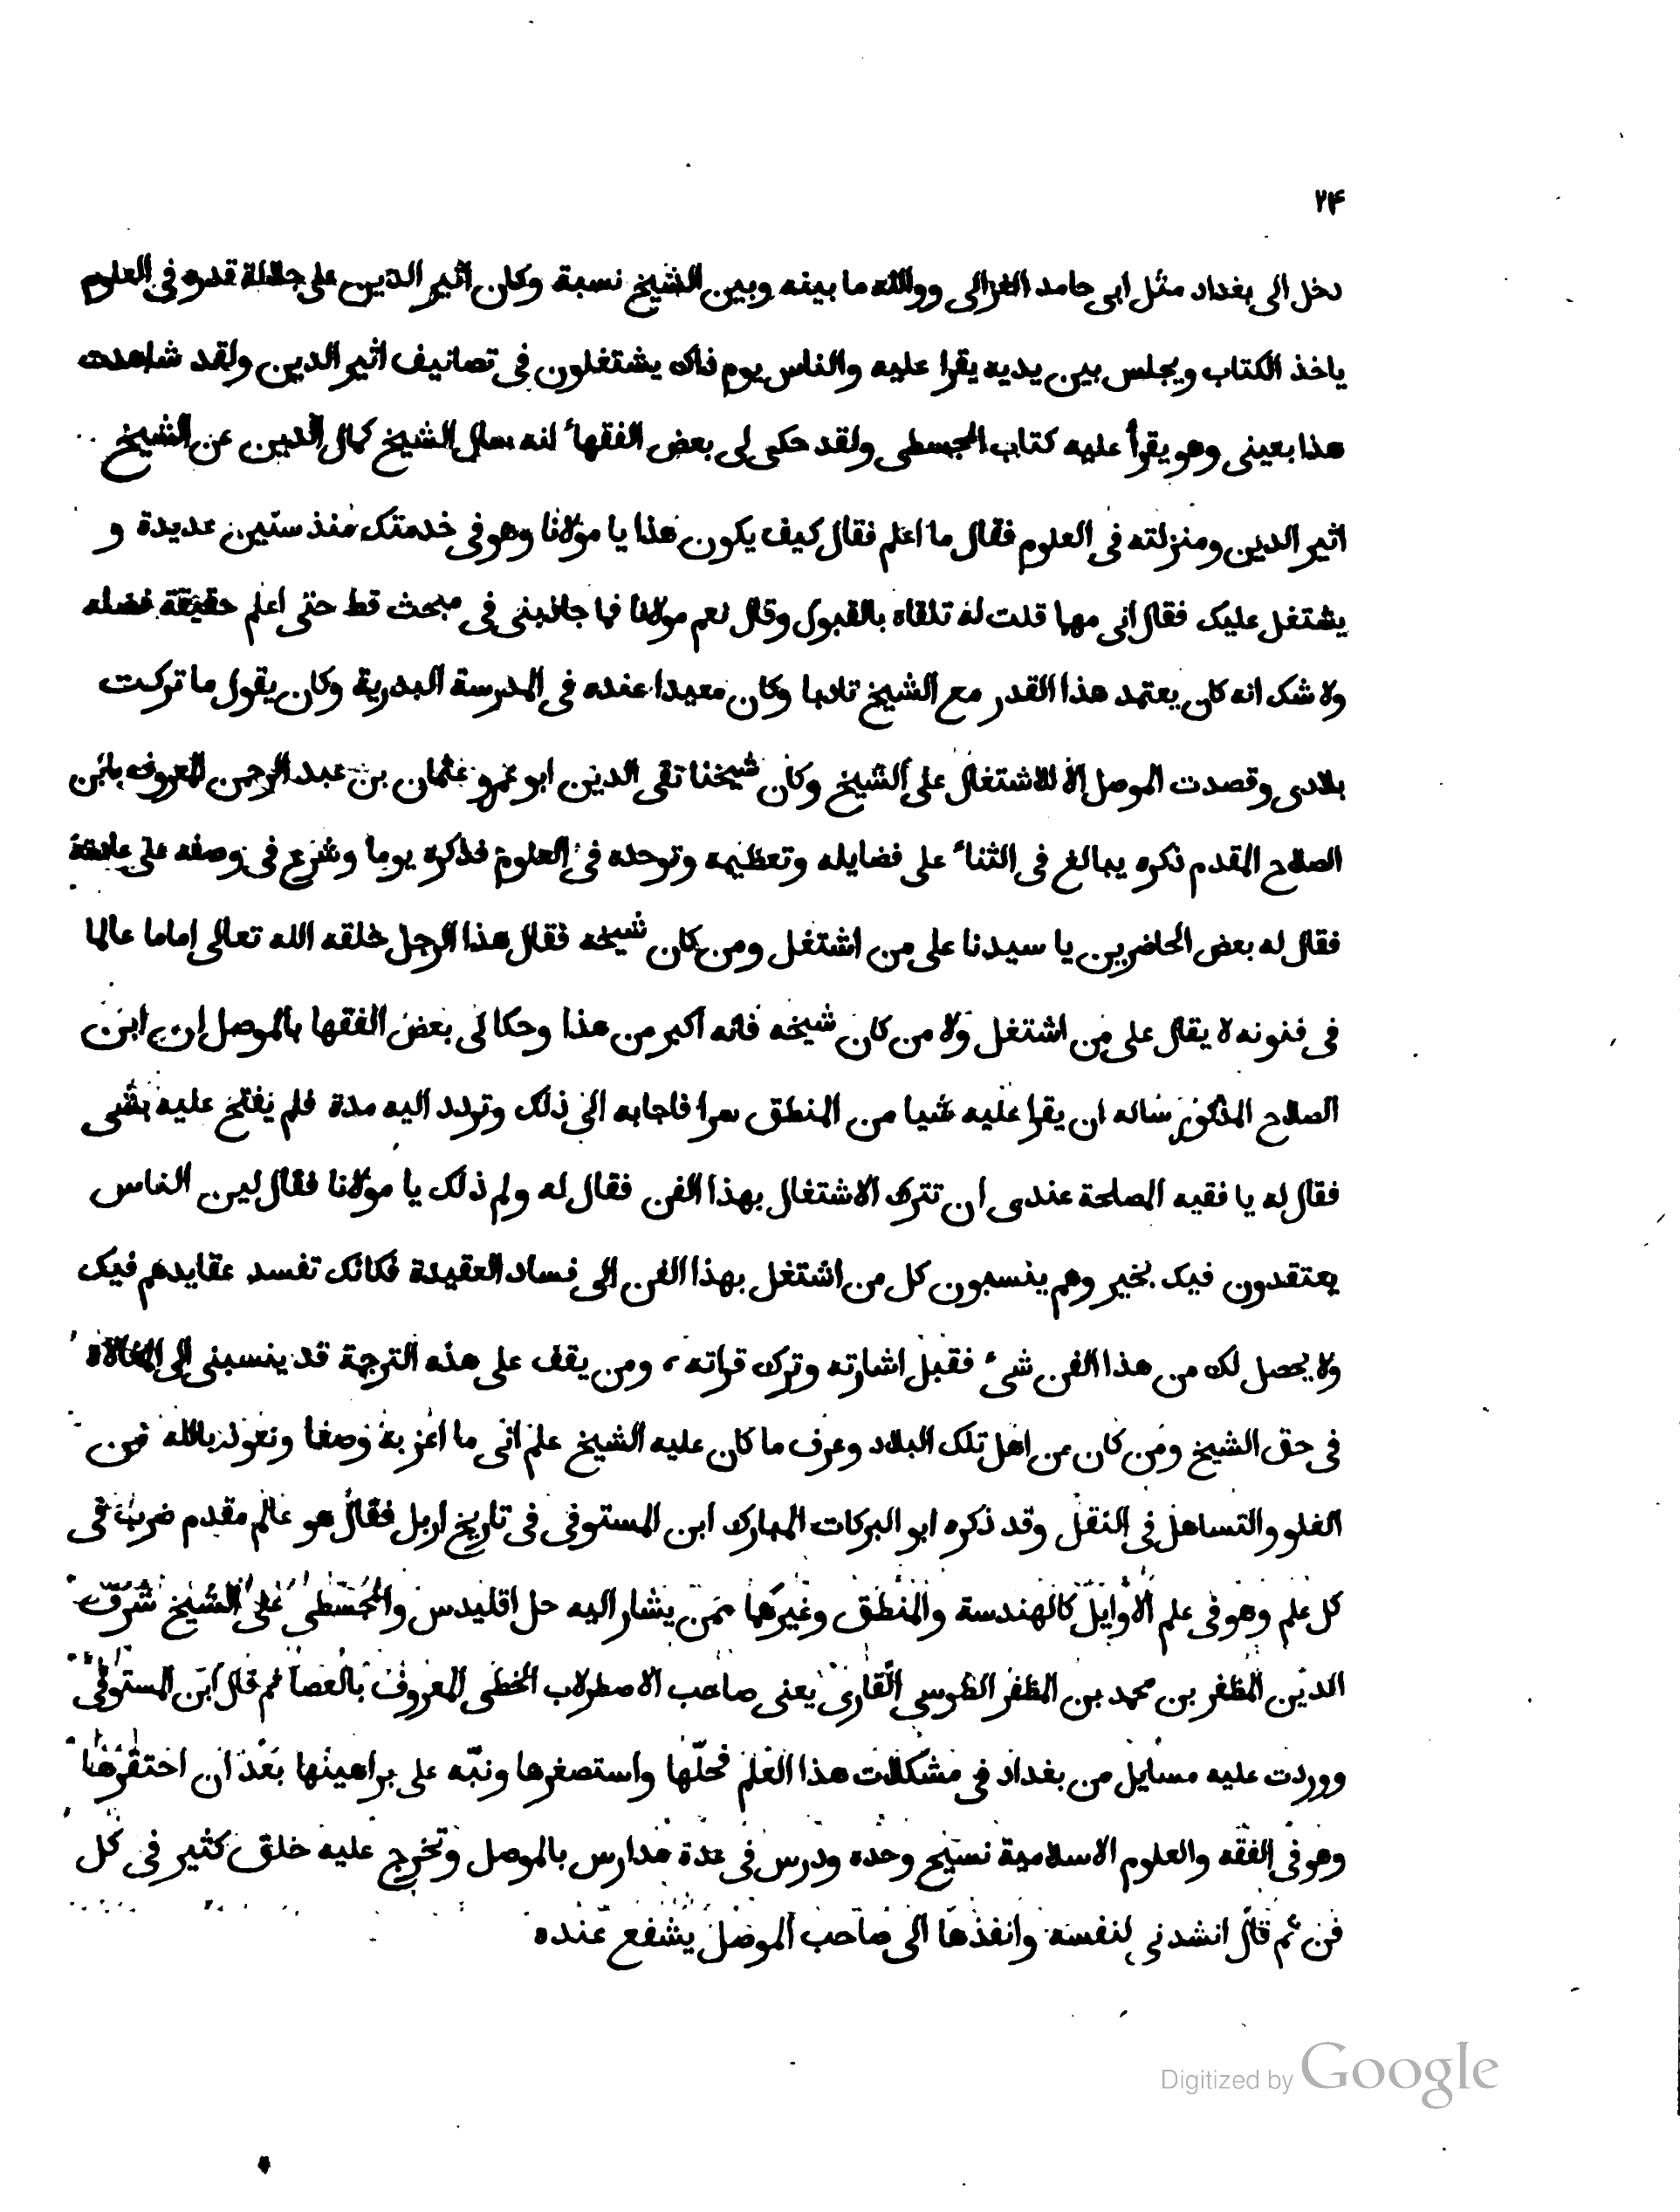 ٢۴
دخل الى بغداد مثل ابى حامد الغزالى ووالله ما بينه وبين الشيخ نسبة وكان اثير الدين على جلالة قدره فى العلوم
ياخذ الكتاب ويجلس بين يديه يقرا عليه والناس يوم ذاك يشتغلون فى تصانيف اثير الدين ولقد شاهدت
هذا بعينى وهو يقرأ عليه كتاب المجسطى ولقد حكى لى بعض الفقهاء انه سال الشيخ كمال الدين عن الشيخ
اثير الدين ومنزلته فى العلوم فقال ما اعلم فقال كيف يكون هذا يا مولانا وهو فى خدمتك منذ سنين عديدة و
يشتغل عليك فقال انى مهما قلت له تلقاه بالقبول وقال نعم مولانا فما جاذبنى فى مبحث قط حتى اعلم حقيقة فضله
ولا شك انه كان يعتمد هذا القدر مع الشيخ تادبا وكان معيدا عنده فى المدرسة البدرية وكان يقول ما تركت
بلادى وقصدت الموصل الا للاشتغال على الشيخ وكان شيخنا تقى الدين ابو عمرو عثمان بن عبد الرحمن المعروف بابن
الصلاح المقدم ذكره يبالغ فى الثناء على فضايله وتعظيمه وتوحده فى العلوم فذكره يوما وشرع فى وصفه على عادته
فقال له بعض الحاضرين يا سيدنا على من اشتغل ومن كان شيخه فقال هذا الرجل خلقه الله تعالى اماما عالما
فى فنونه لا يقال على من اشتغل ولا من كان شيخه فانه اكبر من هذا وحكا لى بعض الفقها بالموصل ان ابن
الصلاح المذكور ساله ان يقرا عليه شيا من المنطق سرا فاجابه الى ذلك وتردد اليه مدة فلم يفتح عليه بشى
فقال له يا فقيه المصلحة عندى ان تترك الاشتغال بهذا الفن فقال له ولم ذلك يا مولانا فقال لين الناس
يعتقدون فيك بخير وهم ينسبون كل من اشتغل بهذا الفن الى فساد العقيدة فكانك تفسد عقايدهم فيك
ولا يحصل لك من هذا الفن شىء فقبل اشارته وترك قراته ، ومن يقف على هذه الترجمة قد ينسبنى الى المغالاة
فى حق الشيخ ومن كان من اهل تلك البلاد وعرف ما كان عليه الشيخ علم انى ما اعزبه وصفا ونعوذ بالله من
الغلو والتساهل فى النقل وقد ذكره ابو البركات المبارك ابن المستوفى فى تاريخ اربل فقال هو عالم مقدم ضرب فى
كل علم وهو فى علم الاوايل كالهندسة والمنطق وغيرهما ممن يشار اليه حل اقليدس والمجسطى على الشيخ شرف
الدين المظفر بن محمد بن المظفر الطوسى القارى يعنى صاحب الاصطرلاب الخطى المعروف بالعصا ثم قال ابن المستوفى
ووردت عليه مسايل من بغداد فى مشكلات هذا العلم فحلّها واستصغرها ونبّه على براهينها بعد ان احتقرها
وهو فى الفقه والعلوم الاسلامية نسيج وحده ودرس فى عدة مدارس بالموصل وتخرج عليه خلق كثير فى كل
فن ثم قال انشدنى لنفسه وانفذها الى صاحب الموصل يشفع عنده
Digitized by Google